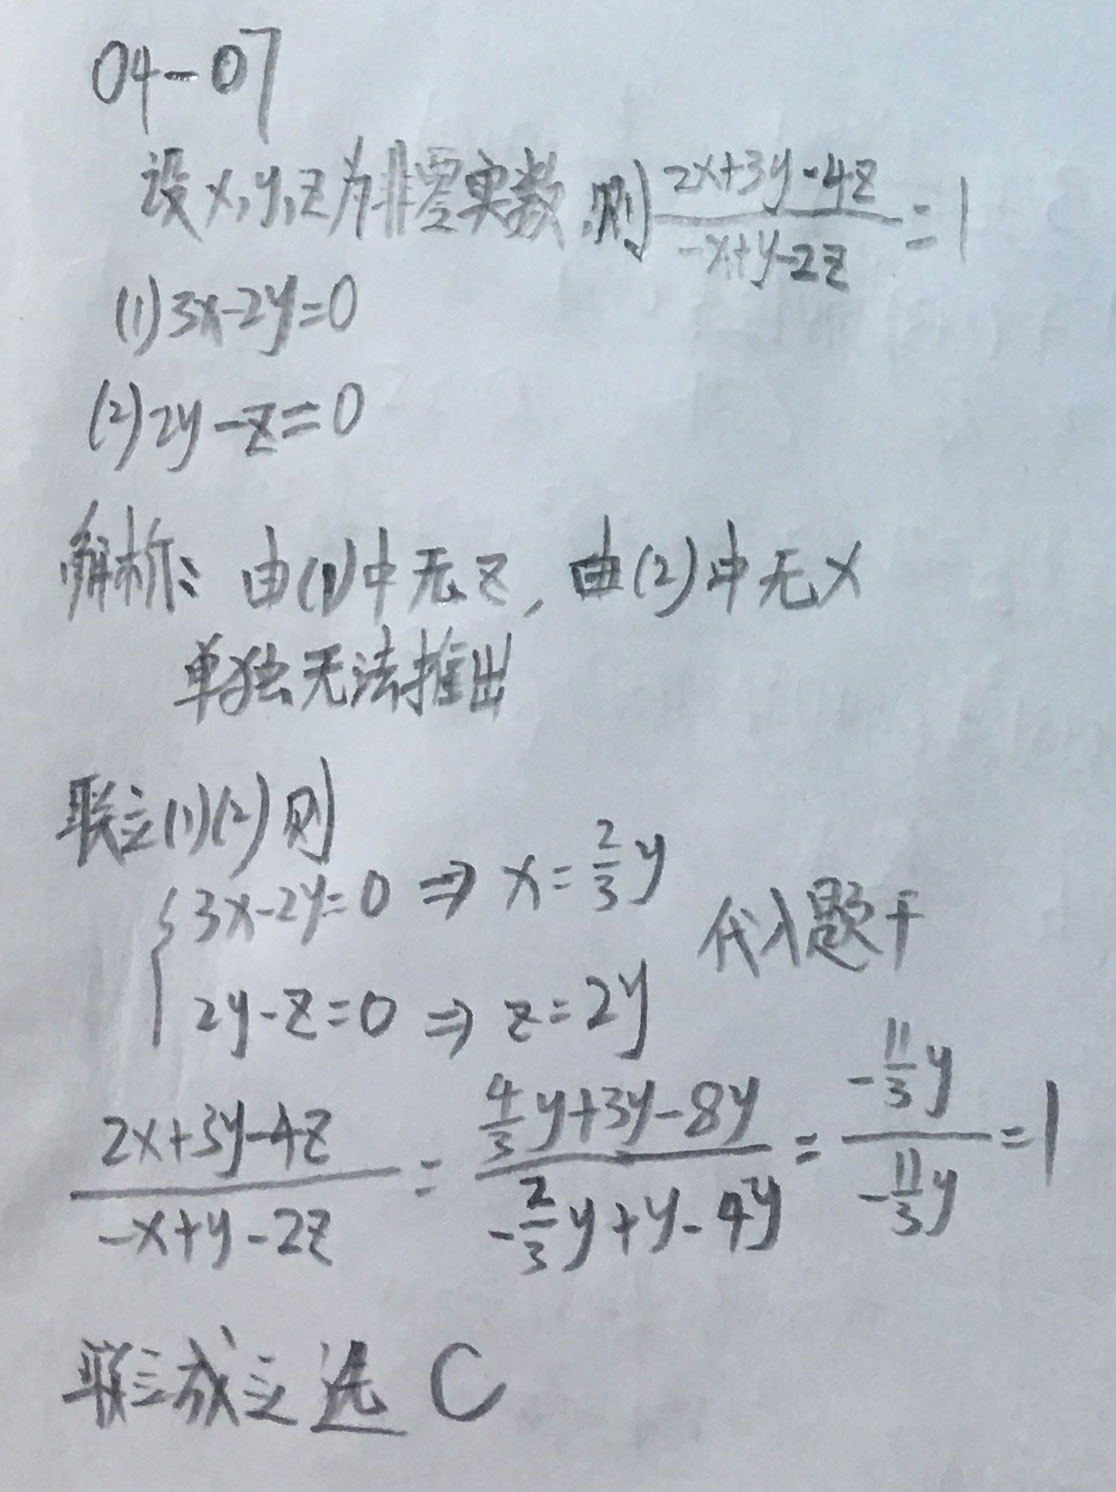 04-07
设x,y,z为非零实数,则 \frac{2x+3y-4z}{-x+y-2z}=1
(1)3x-2y=0
(2)2y-z=0
解析: 由(1)中无z, 由(2)中无x
单独无法推出
联立(1)(2)则
3x-2y=0 ⇒ x=\frac{2}{3}y
代入题干
2y-z=0 ⇒ z=2y
\frac{2x+3y-4z}{-x+y-2z}=\frac{\frac{4}{3}y+3y-8y}{-\frac{2}{3}y+y-4y}=\frac{-\frac{11}{3}y}{-\frac{11}{3}y}=1
联立成立选 C